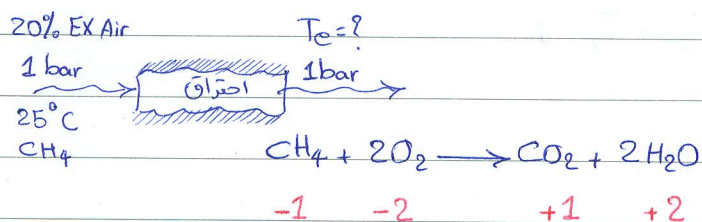 20% EX Air
Te=?
1 bar
احتراق
1bar
25°C
CH4
CH4 + 2O2 → CO2 + 2H2O
-1 -2 +1 +2